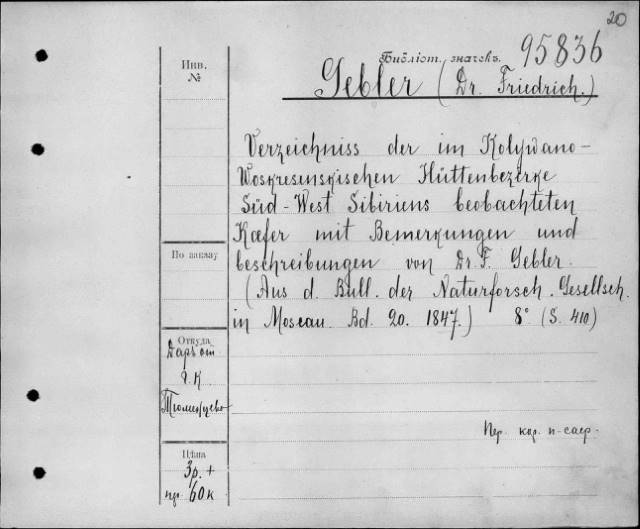 20
Библіот. значекъ. 95836
Gebler (Dr. Friedrich.)
Инв.
№
Verzeichniss der im Kolywano-
Woskresenskischen Hüttenbezirke
Süd-West Sibiriens beobachteten
Kæfer mit Bemerkungen und
beschreibungen von Dr. F. Gebler.
(Aus d. Bull. der Naturforsch. Gesellsch.
in Moscau. Bd. 20. 1847.) 8° (S. 410)
По заказу
Откуда
Даръ от
г. К
Тюменцева
Пер. кор. п-саф.
Цѣна
3 р. +
пер. 60 к